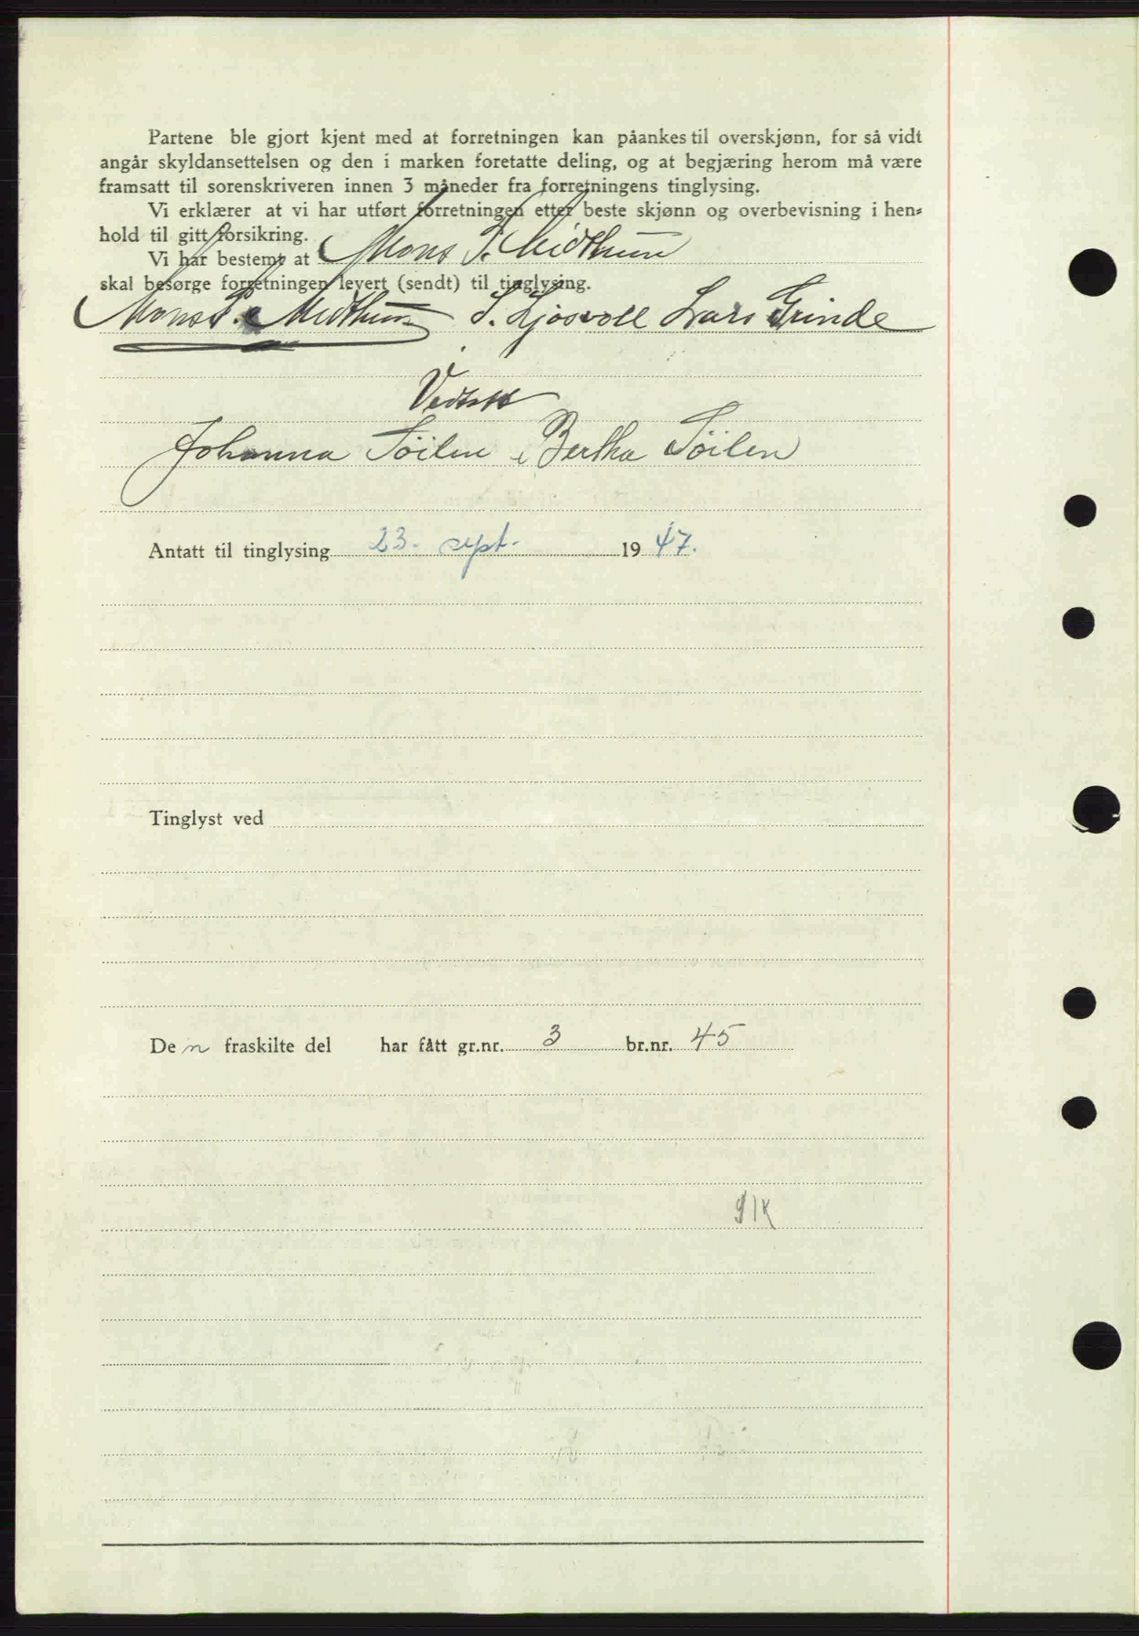 Partene ble gjort kjent med at forretningen kan påankes til overskjønn, for så vidt
angår skyldansettelsen og den i marken foretatte deling, og at begjæring herom må være
framsatt til sorenskriveren innen 3 måneder fra forretningens tinglysing.
Vi erklærer at vi har utført forretningen etter beste skjønn og overbevisning i hen-
hold til gitt forsikring.
Vi har bestemt at Mons S. Midthun
skal besørge forretningen levert (sendt) til tinglysing.
Mons S. Midthun S. Ljosvoll Lars Grinde
Vedtatt
Johanna Söilen, Bertha Söilen
Antatt til tinglysing 23. sept. 1947.
Tinglyst ved
Den fraskilte del har fått gr.nr. 3 br.nr. 45